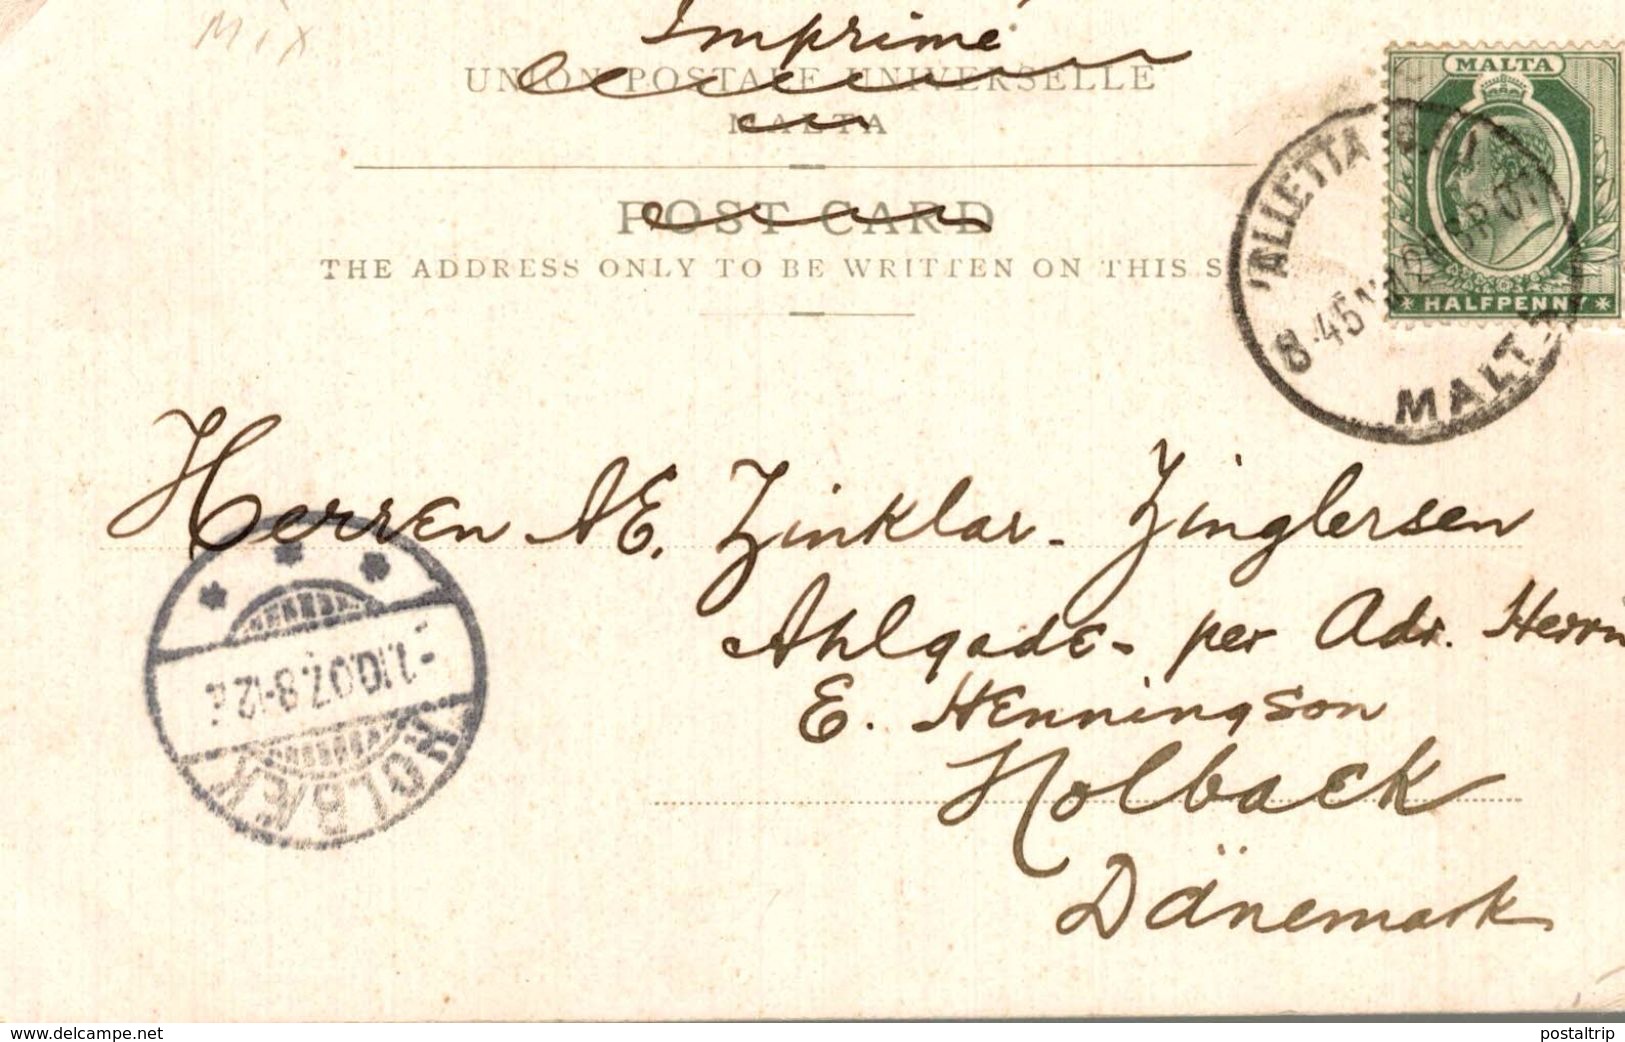 Mix
Imprimé
UNION POSTALE UNIVERSELLE
MALTA
POST CARD
THE ADDRESS ONLY TO BE WRITTEN ON THIS S
MALTA
HALFPENNY
VALLETTA
8.45
MALTA
Herren AE. Zinklar-Zinglersen
Ahlgade- per Adr. Herrn
E. Henningson
Holbaek
Dänemark
-1.10.07.8-12
HOLBÆK
www.delcampe.net
postaltrip